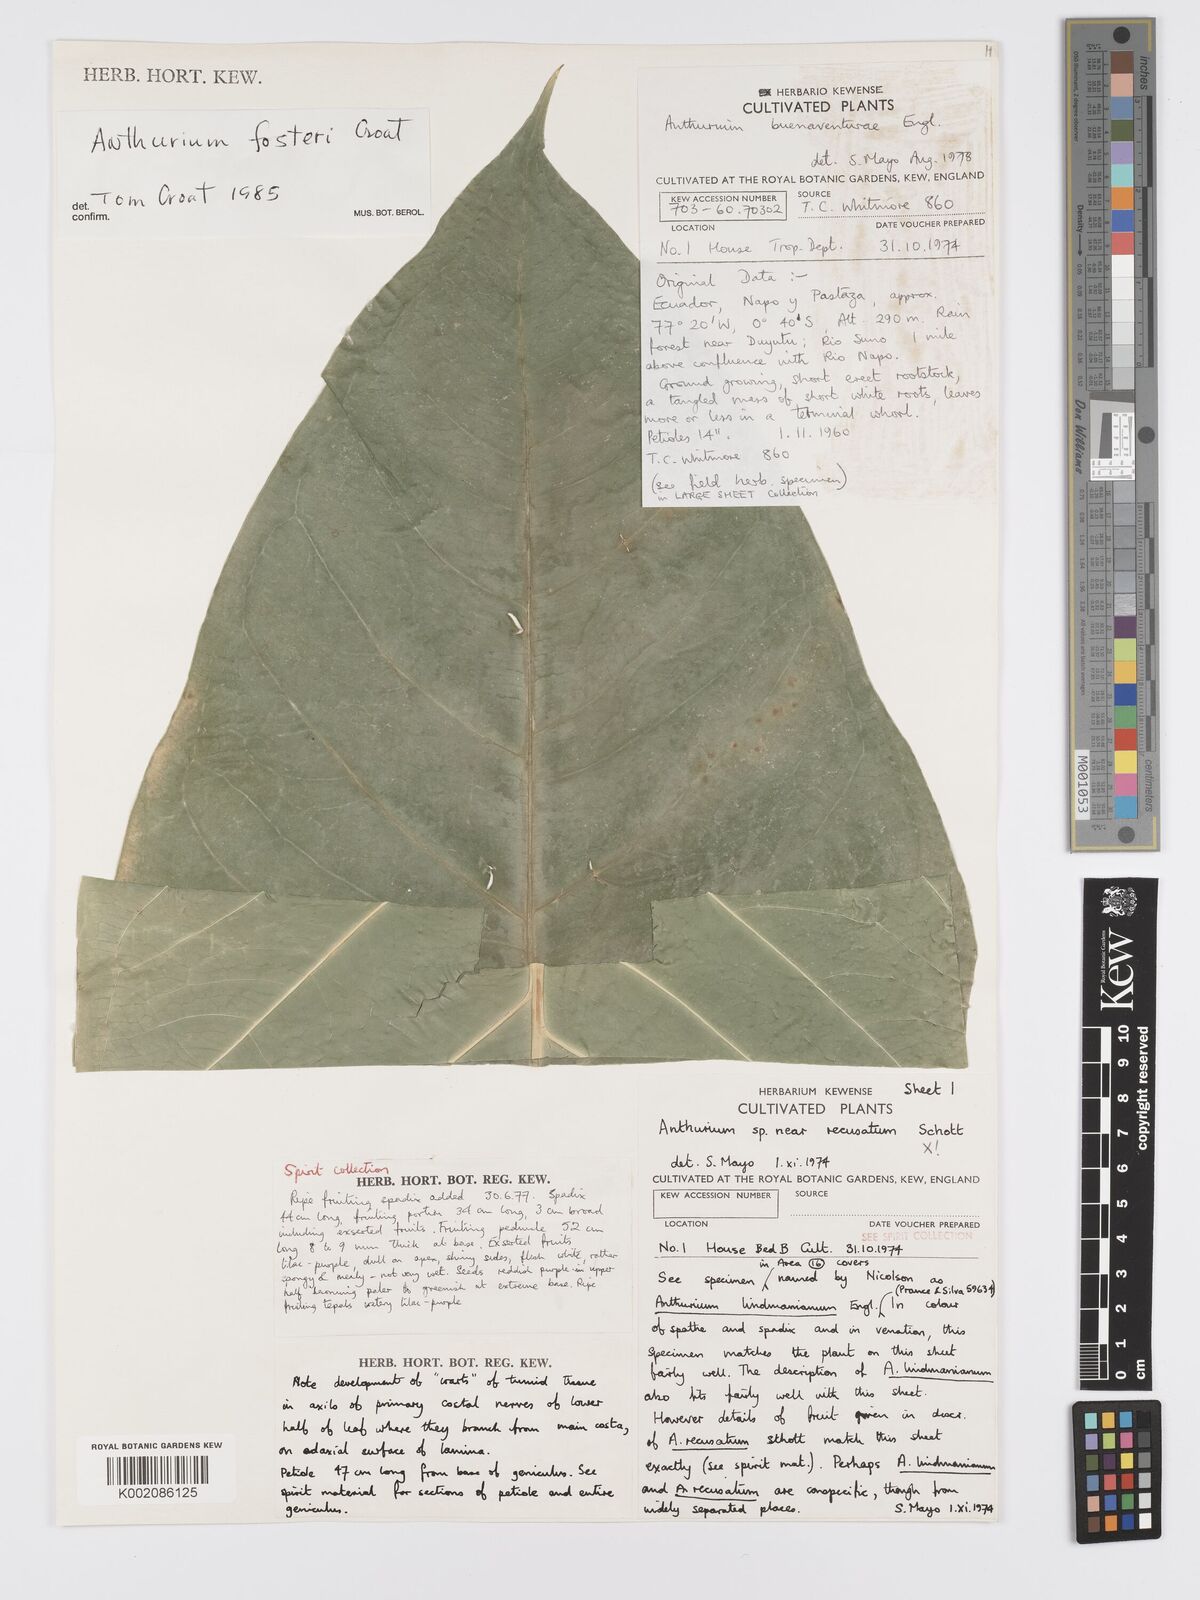 HERB. HORT. KEW.
Anthurium fosteri Croat
det. Tom Croat 1985
confirm.
MUS. BOT. BEROL.
HERBARIO KEWENSE
CULTIVATED PLANTS
Anthurium buenaventurae Engl.
det. S. Mayo Aug. 1978
CULTIVATED AT THE ROYAL BOTANIC GARDENS, KEW, ENGLAND
KEW ACCESSION NUMBER
703-60.70302
SOURCE
T.C. Whitmore 860
LOCATION
DATE VOUCHER PREPARED
No. 1 House Trop. Dept. 31.10.1974
Original Data :-
Ecuador, Napo y Pastaza, approx.
77° 20'W, 0° 40'S, Alt. 290 m. Rain
forest near Duyutu; Rio Suno 1 mile
above confluence with Rio Napo.
Ground growing, short erect rootstock,
a tangled mass of short white roots, leaves
more or less in a terminal whorl.
Petioles 14". 1.11.1960
T.C. Whitmore 860
(see field herb. specimen)
in LARGE SHEET Collection
HERBARIUM KEWENSE Sheet 1
CULTIVATED PLANTS
Anthurium sp. near recusatum Schott
X!
det. S. Mayo 1.xi.1974
CULTIVATED AT THE ROYAL BOTANIC GARDENS, KEW, ENGLAND
KEW ACCESSION NUMBER
SOURCE
LOCATION
DATE VOUCHER PREPARED
SEE SPIRIT COLLECTION
No. 1 House Bed B Cult. 31.10.1974
in Area 16 covers
See specimen named by Nicolson as
(Prance & Silva 59634)
Anthurium lindmanianum Engl. In colour
of spathe and spadix and in venation, this
specimen matches the plant on this sheet
fairly well. The description of A. lindmanianum
also fits fairly well with this sheet.
However details of fruit given in descr.
of A. recusatum Schott match this sheet
exactly (see spirit mat.). Perhaps A. lindmanianum
and A. recusatum are conspecific, though from
widely separated places. S. Mayo 1.xi.1974
Spirit collection
HERB. HORT. BOT. REG. KEW.
Ripe fruiting spadix added 30.6.77. Spadix
44 cm long, fruiting portion 34 cm long, 3 cm broad
including exserted fruits. Fruiting peduncle 52 cm
long 8 to 9 mm thick at base. Exserted fruits
lilac-purple, dull on apex, shiny sides, flesh white, rather
spongy & mealy - not very wet. Seeds reddish purple in upper
half becoming paler to greenish at extreme base. Ripe
fruiting tepals watery lilac-purple
HERB. HORT. BOT. REG. KEW.
Note development of "warts" of tumid tissue
in axils of primary costal nerves of lower
half of leaf where they branch from main costa,
on adaxial surface of lamina.
Petiole 47 cm long from base of geniculus. See
spirit material for sections of petiole and entire
geniculus.
ROYAL BOTANIC GARDENS KEW
K002086125
inches
centimetres
Density
Don Williams
M001053
Royal Botanic Gardens
Kew
copyright reserved
0 1 2 3 4 5 6 7 8 9 10
cm